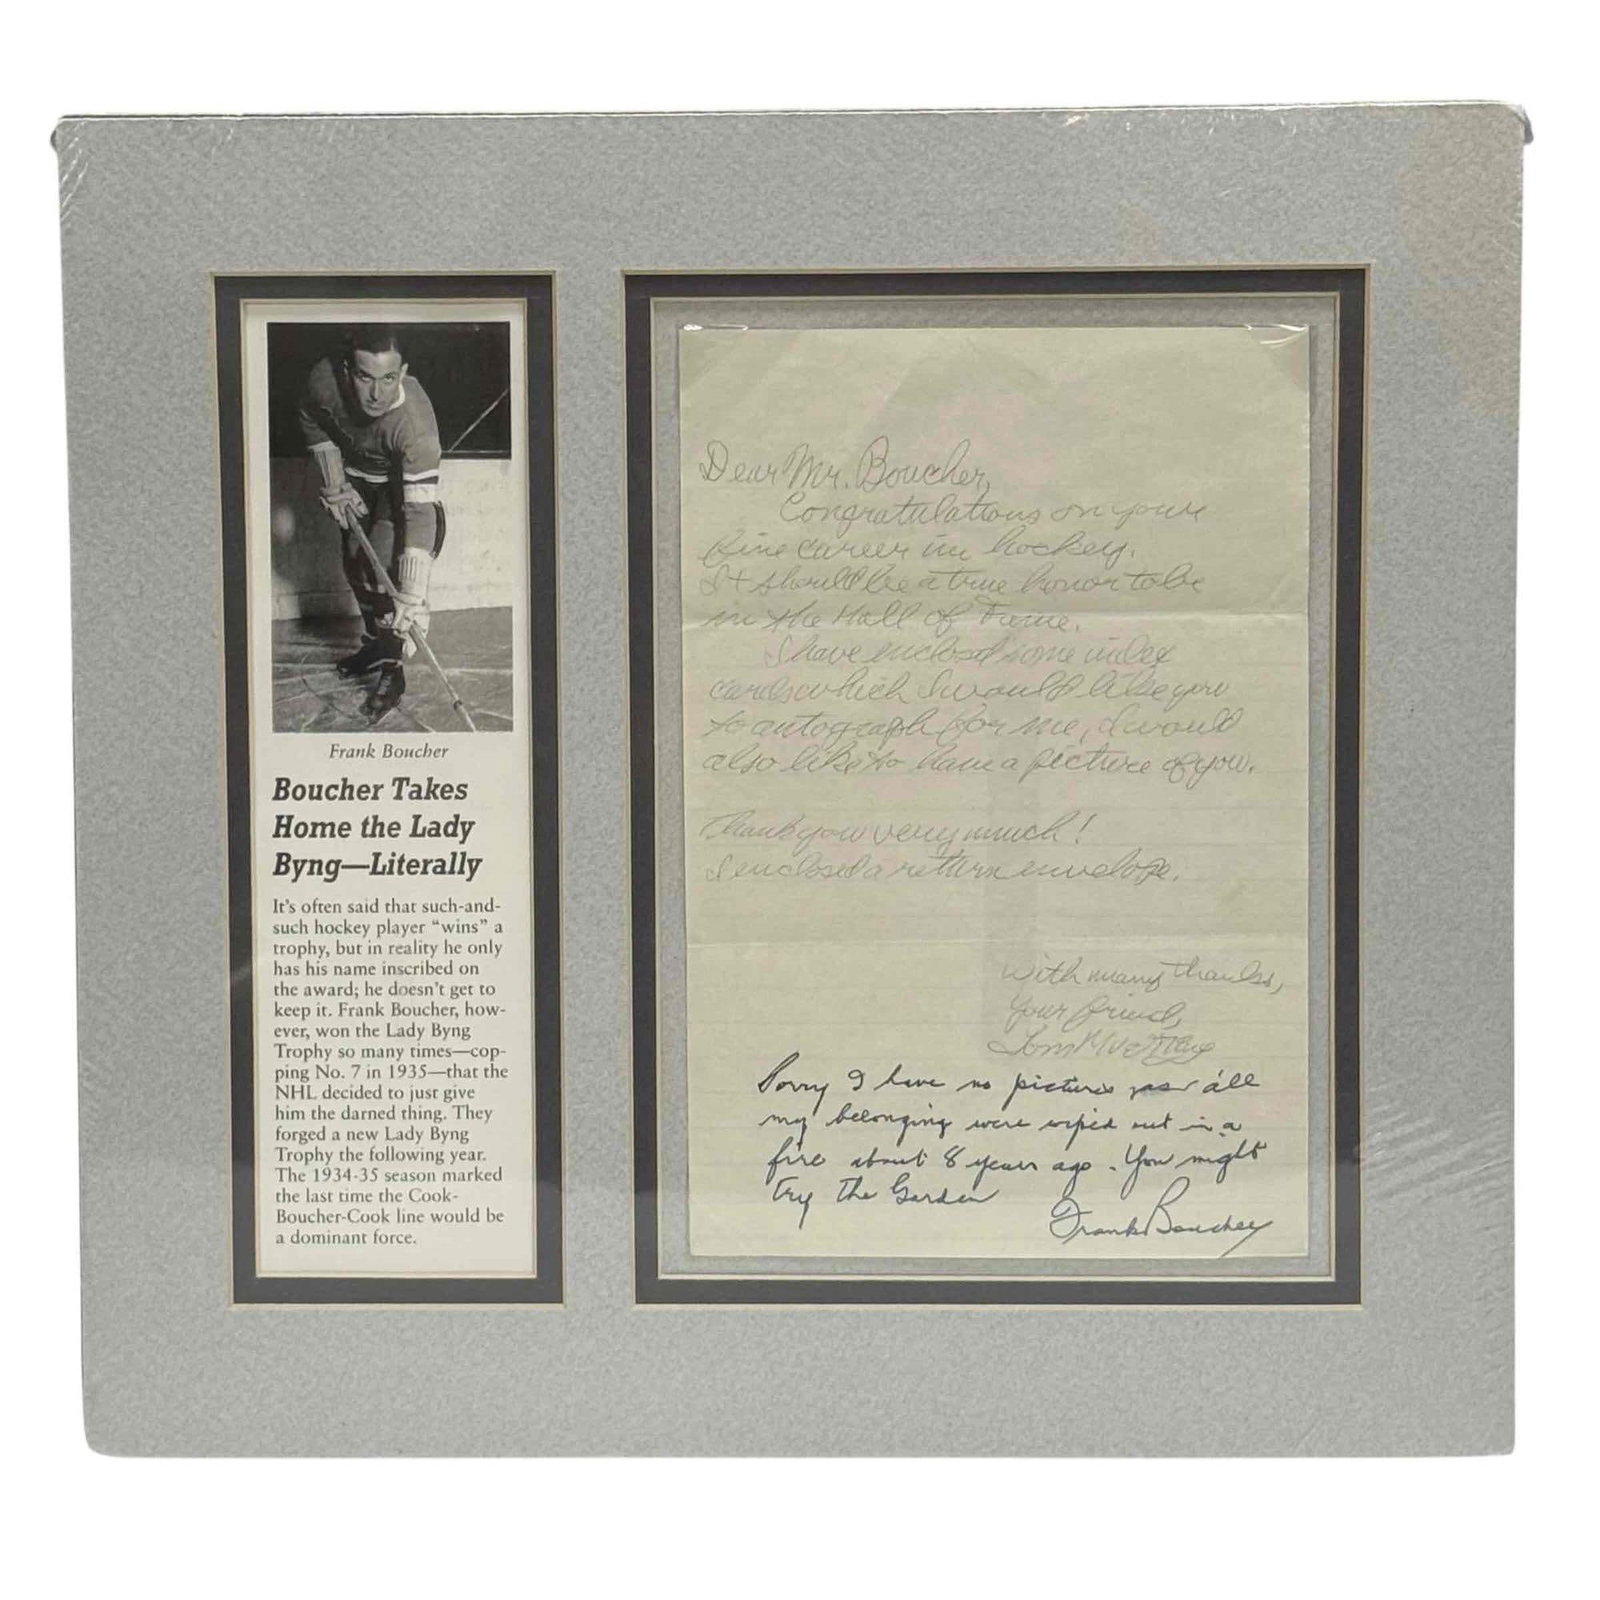 Frank Boucher
Boucher Takes
Home the Lady
Byng—Literally
It's often said that such-and-
such hockey player "wins" a
trophy, but in reality he only
has his name inscribed on
the award; he doesn't get to
keep it. Frank Boucher, how-
ever, won the Lady Byng
Trophy so many times—cop-
ping No. 7 in 1935—that the
NHL decided to just give
him the darned thing. They
forged a new Lady Byng
Trophy the following year.
The 1934-35 season marked
the last time the Cook-
Boucher-Cook line would be
a dominant force.
Dear Mr. Boucher,
Congratulations on your
fine career in hockey.
It should be a true honor to be
in the Hall of Fame.
I have enclosed some index
cards which I would like you
to autograph for me, I would
also like to have a picture of you.
Thank you very much!
I enclosed a return envelope.
With many thanks,
Your friend,
Tom
Sorry I have no pictures as all
my belonging were wiped out in a
fire about 8 years ago. You might
try the Garden
Frank Boucher